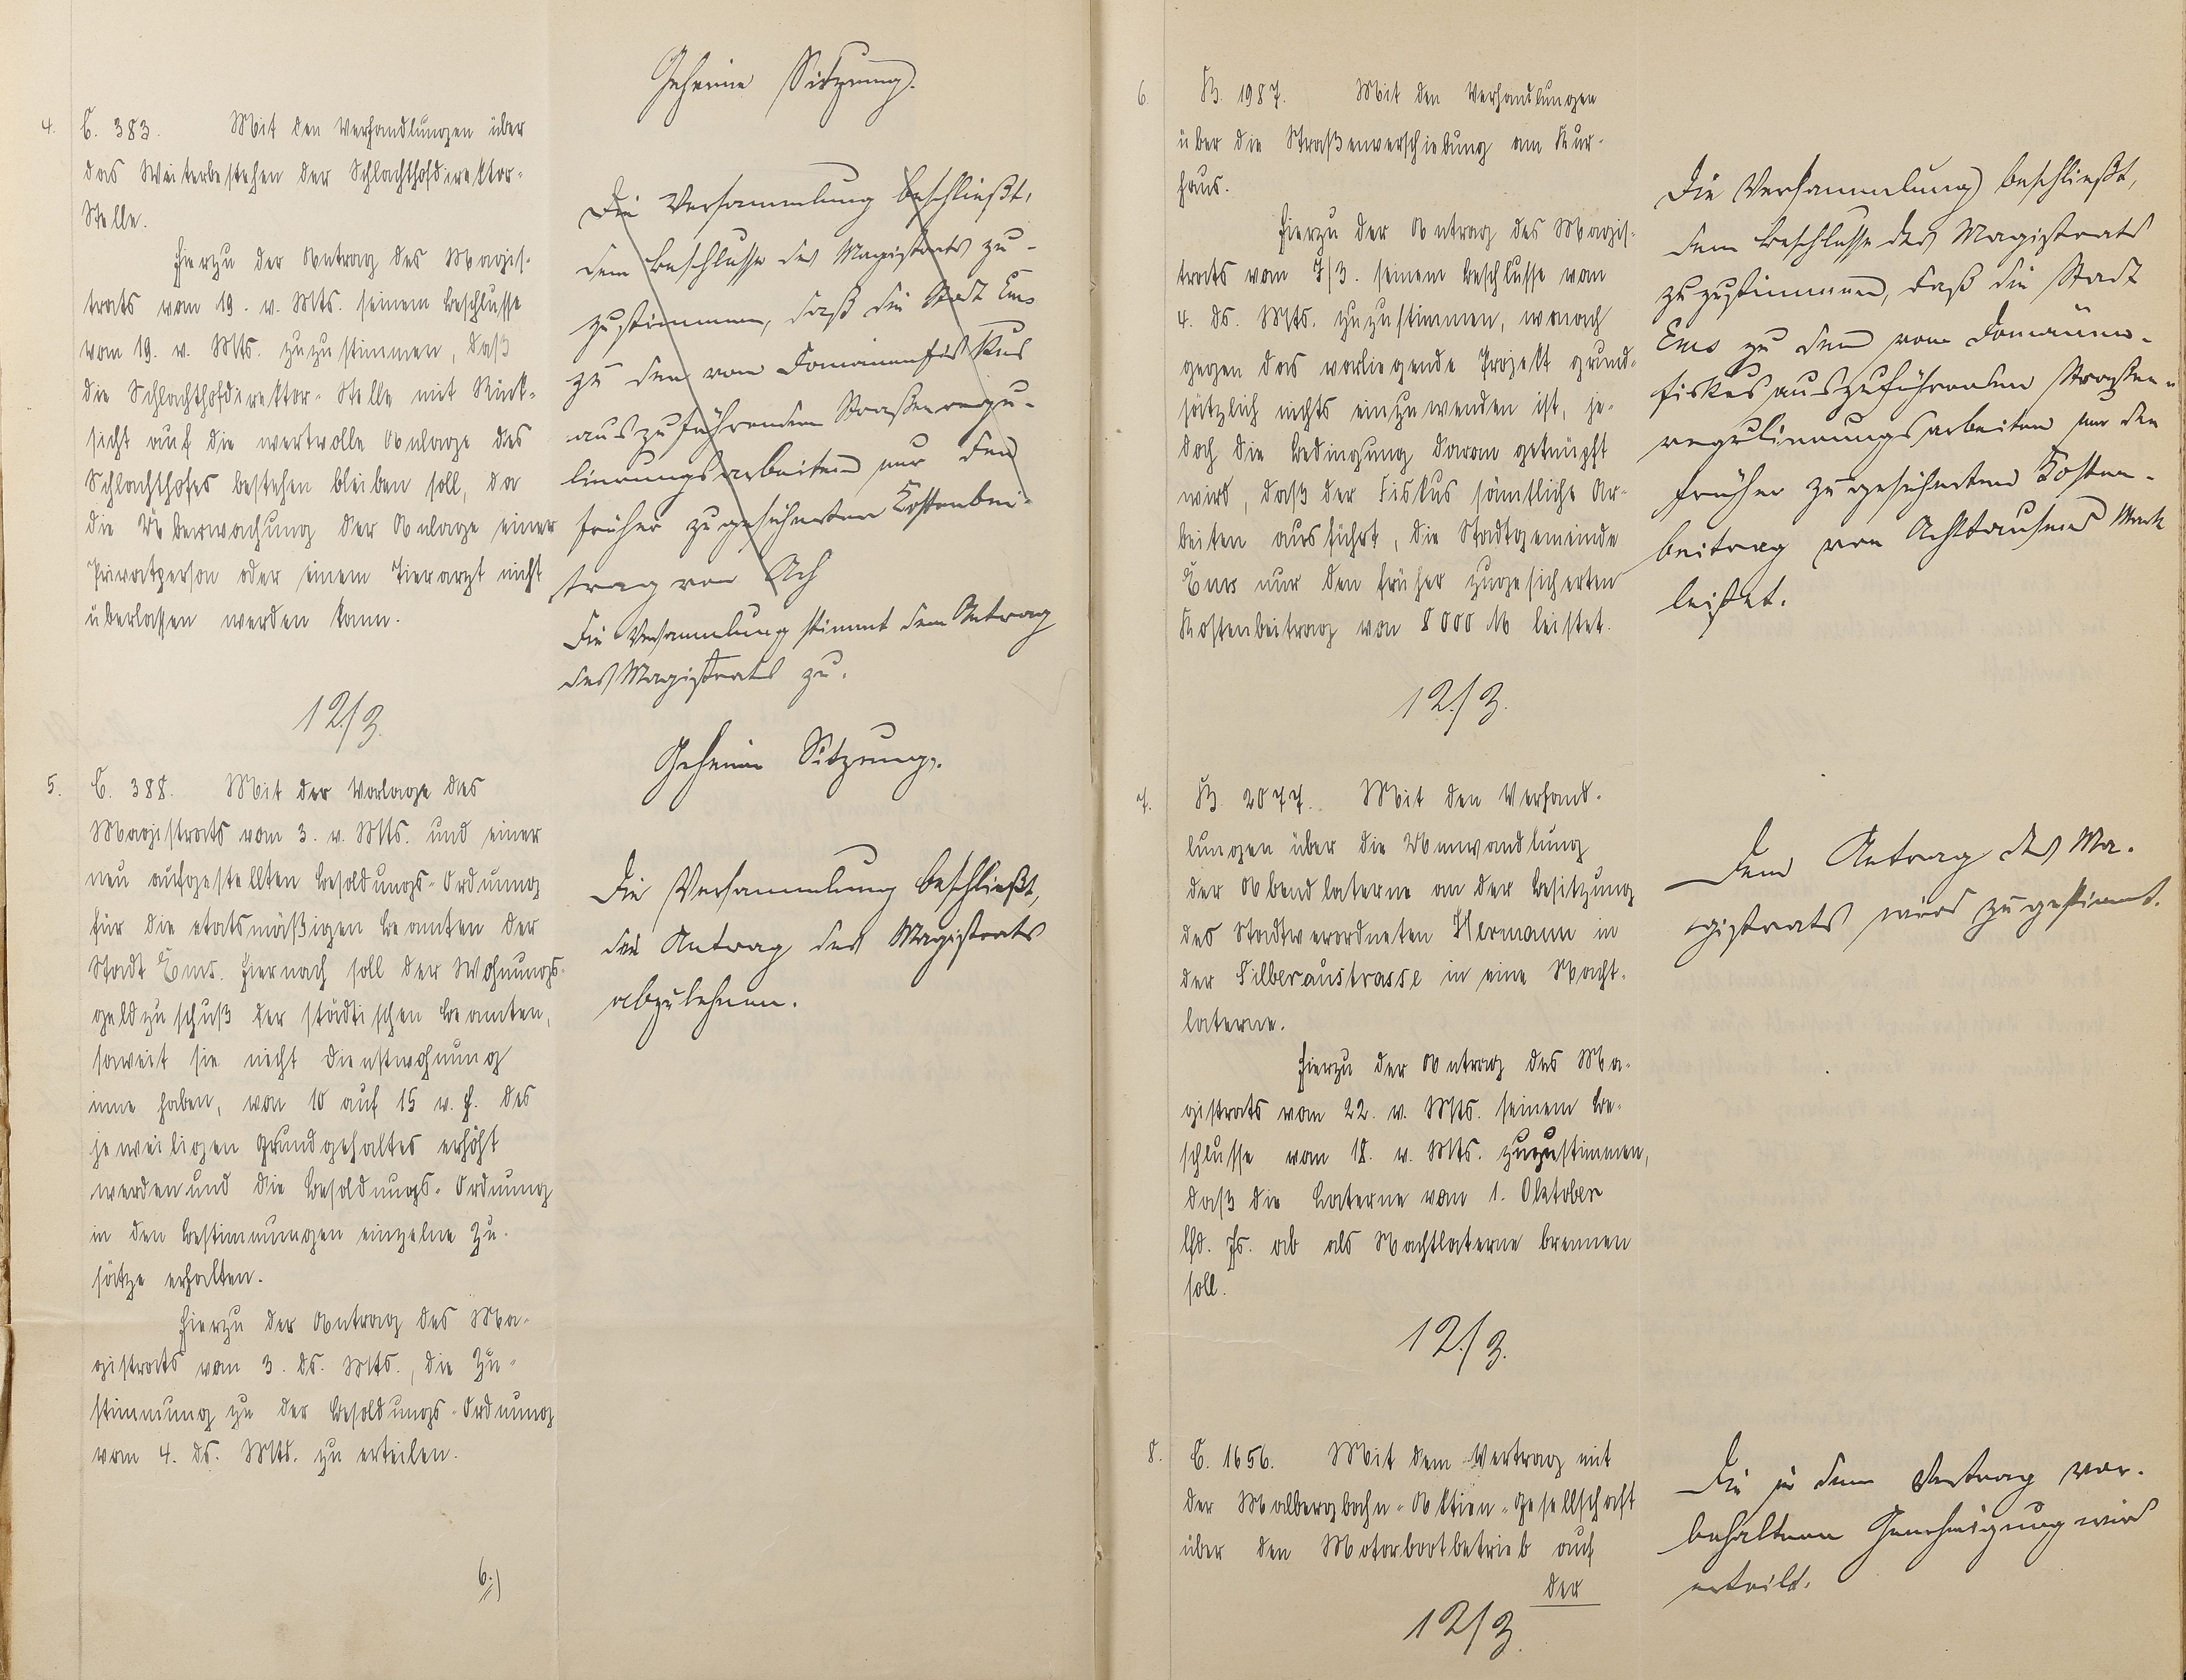 Geheime Sitzung.
4. C. 383. Mit den Verhandlungen über
das Weiterbestehen der Schlachthofdirektor-
Stelle.
Hierzu der Antrag des Magis-
trats vom 19. v. Mts. seinem Beschlusse
vom 19. v. Mts. zuzustimmen, daß
die Schlachthofdirektor-Stelle mit Rück-
sicht auf die wertvolle Anlage des
Schlachthofes bestehen bleiben soll, da
die Überwachung der Anlage einer
Privatperson oder einem Tierarzt nicht
überlassen werden kann.
12/3.
Die Versammlung beschließt,
dem Beschlusse des Magistrats zu-
zustimmen, daß die Stadt Ems
zu den vom Domänenfiskus
auszuführenden Straßenregu-
lierungsarbeiten nur den
früher zugesicherten Kostenbei-
trag von Ach
Die Versammlung stimmt dem Antrag
des Magistrats zu.
Geheime Sitzung.
5. C. 388. Mit der Vorlage des
Magistrats vom 3. v. Mts. und einer
neu aufgestellten Besoldungs-Ordnung
für die etatsmäßigen Beamten der
Stadt Ems. Hiernach soll der Wohnungs-
geldzuschuß der städtischen Beamten,
soweit sie nicht Dienstwohnung
inne haben, von 10 auf 15 v. H. des
jeweiligen Grundgehaltes erhöht
werden und die Besoldungs-Ordnung
in den Bestimmungen einzelne Zu-
sätze erhalten.
Hierzu der Antrag des Ma-
gistrats vom 3. ds. Mts., die Zu-
stimmung zu der Besoldungs-Ordnung
vom 4. ds. Mts. zu erteilen.
6.)
Die Versammlung beschließt,
den Antrag des Magistrats
abzulehnen.
6. B. 1987. Mit den Verhandlungen
über die Straßenverschiebung am Kur-
haus.
Hierzu der Antrag des Magis-
trats vom 7/3. seinem Beschlusse vom
4. ds. Mts. zuzustimmen, wonach
gegen das vorliegende Projekt grund-
sätzlich nichts einzuwenden ist, je-
doch die Bedingung daran geknüpft
wird, daß der Fiskus sämtliche Ar-
beiten ausführt, die Stadtgemeinde
Ems nur den früher zugesicherten
Kostenbeitrag von 8000 M leistet.
12./3.
Die Versammlung beschließt,
dem Beschlusse des Magistrats
zuzustimmen, daß die Stadt
Ems zu den vom Domänen-
fiskus auszuführenden Straßen-
regulierungsarbeiten nur den
früher zugesicherten Kosten-
beitrag von Achttausend Mark
leistet.
7. B. 2077. Mit den Verhand-
lungen über die Umwandlung
der Abendlaterne an der Besitzung
des Stadtverordneten Hermann in
der Silberaustrasse in eine Nacht-
laterne.
Hierzu der Antrag des Ma-
gistrats vom 22. v. Mts. seinem Be-
schlusse vom 18. v. Mts. zuzustimmen,
daß die Laterne vom 1. Oktober
lfd. Js. ab als Nachtlaterne brennen
soll.
12./3.
Dem Antrag des Ma-
gistrats wird zugestimmt.
8. C. 1656. Mit dem Vertrag mit
der Malbergbahn-Aktien-Gesellschaft
über den Motorbootbetrieb auf
der
12/3.
Die in dem Vertrag vor-
behaltene Genehmigung wird
erteilt.